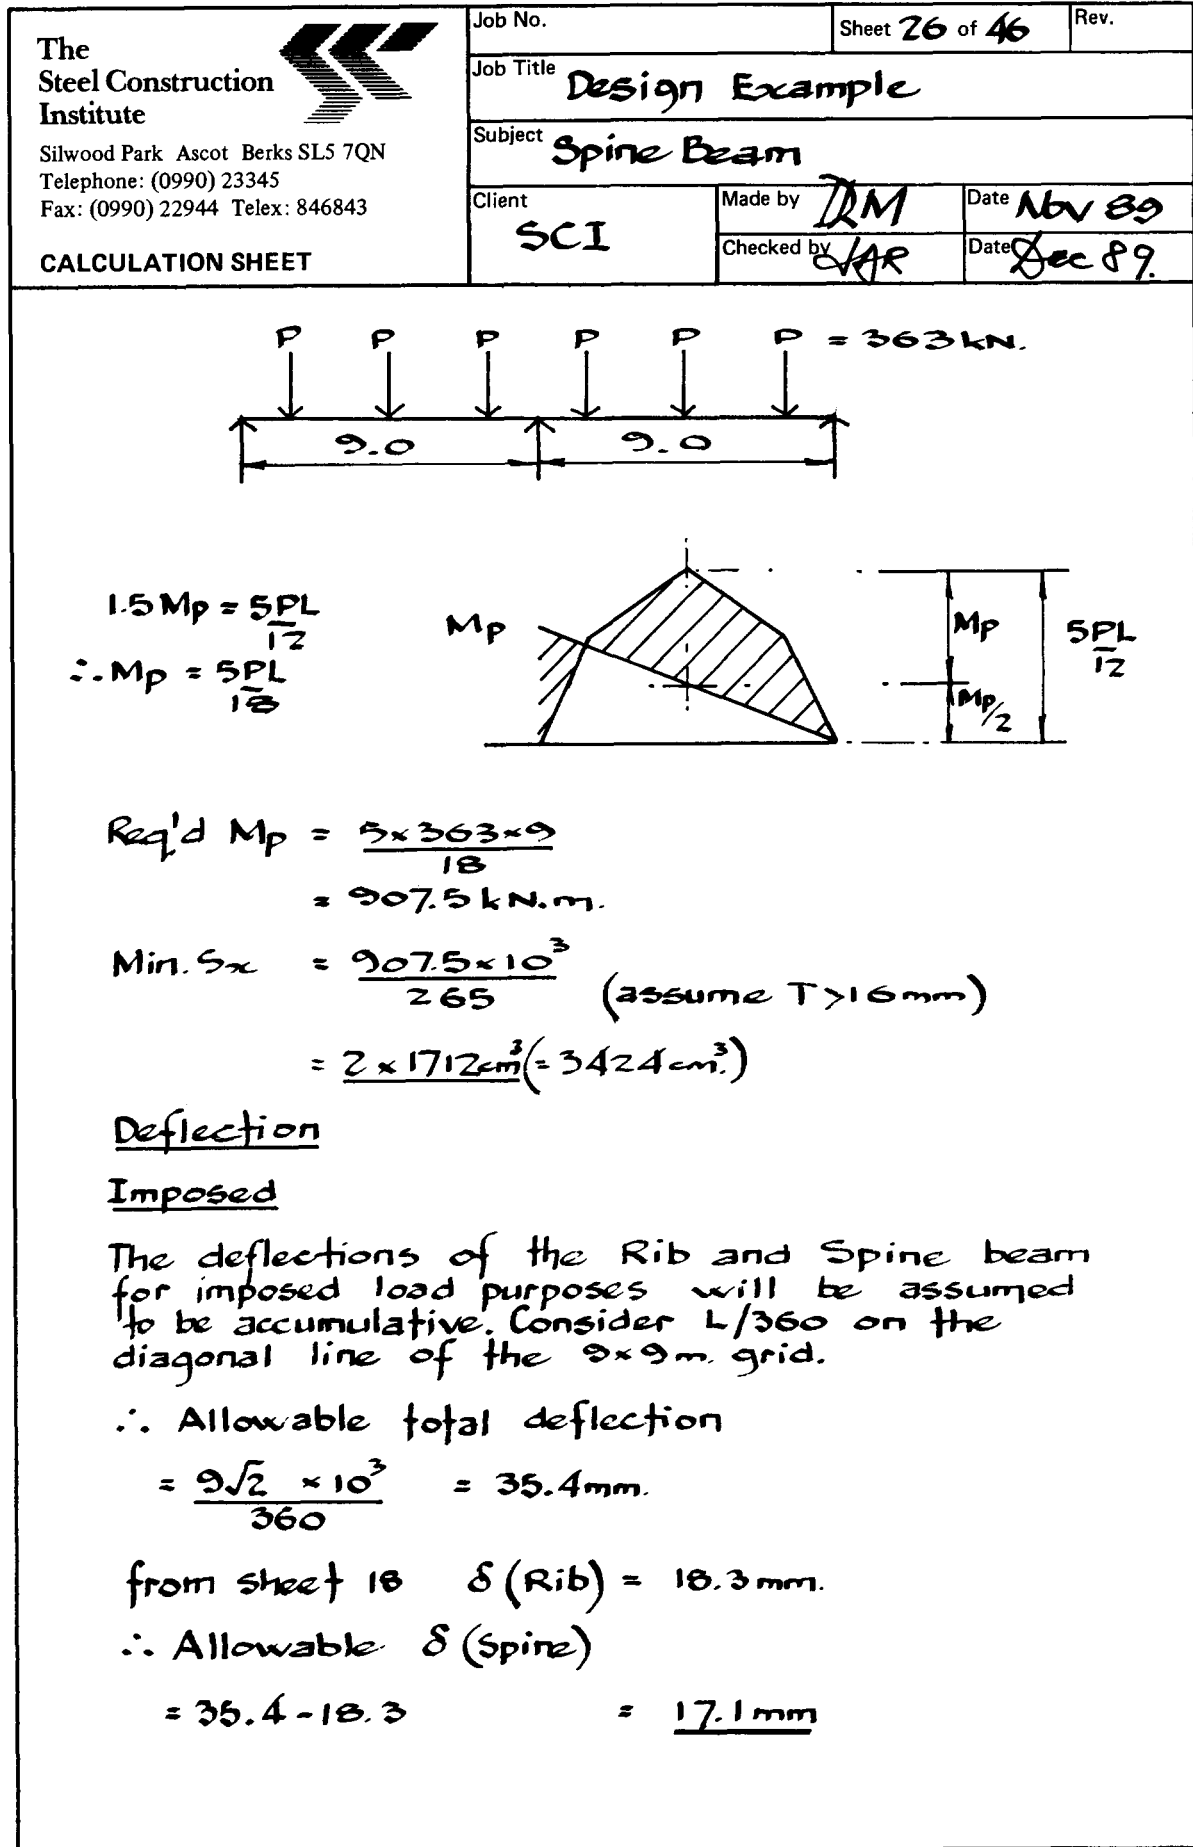 The
Steel Construction
Institute
Silwood Park Ascot Berks SL5 7QN
Telephone: (0990) 23345
Fax: (0990) 22944 Telex: 846843
CALCULATION SHEET
Job No.
Sheet 26 of 46
Rev.
Job Title Design Example
Subject Spine Beam
Client SCI
Made by DRM
Date Nov 89
Checked by JAR
Date Dec 89.
P P P P P P = 363 kN.
9.0 9.0
1.5 Mp = 5PL/12
∴ Mp = 5PL/18
Mp
Mp
Mp/2
5PL/12
Req'd Mp = 5×363×9/18
= 907.5 kN.m.
Min. Sx = 907.5×10³/265 (assume T>16mm)
= 2 × 1712cm³ (= 3424 cm³.)
Deflection
Imposed
The deflections of the Rib and Spine beam
for imposed load purposes will be assumed
to be accumulative. Consider L/360 on the
diagonal line of the 9×9m. grid.
∴ Allowable total deflection
= 9√2 × 10³/360 = 35.4mm.
from sheet 18 δ (Rib) = 18.3 mm.
∴ Allowable δ (Spine)
= 35.4 - 18.3 = 17.1 mm